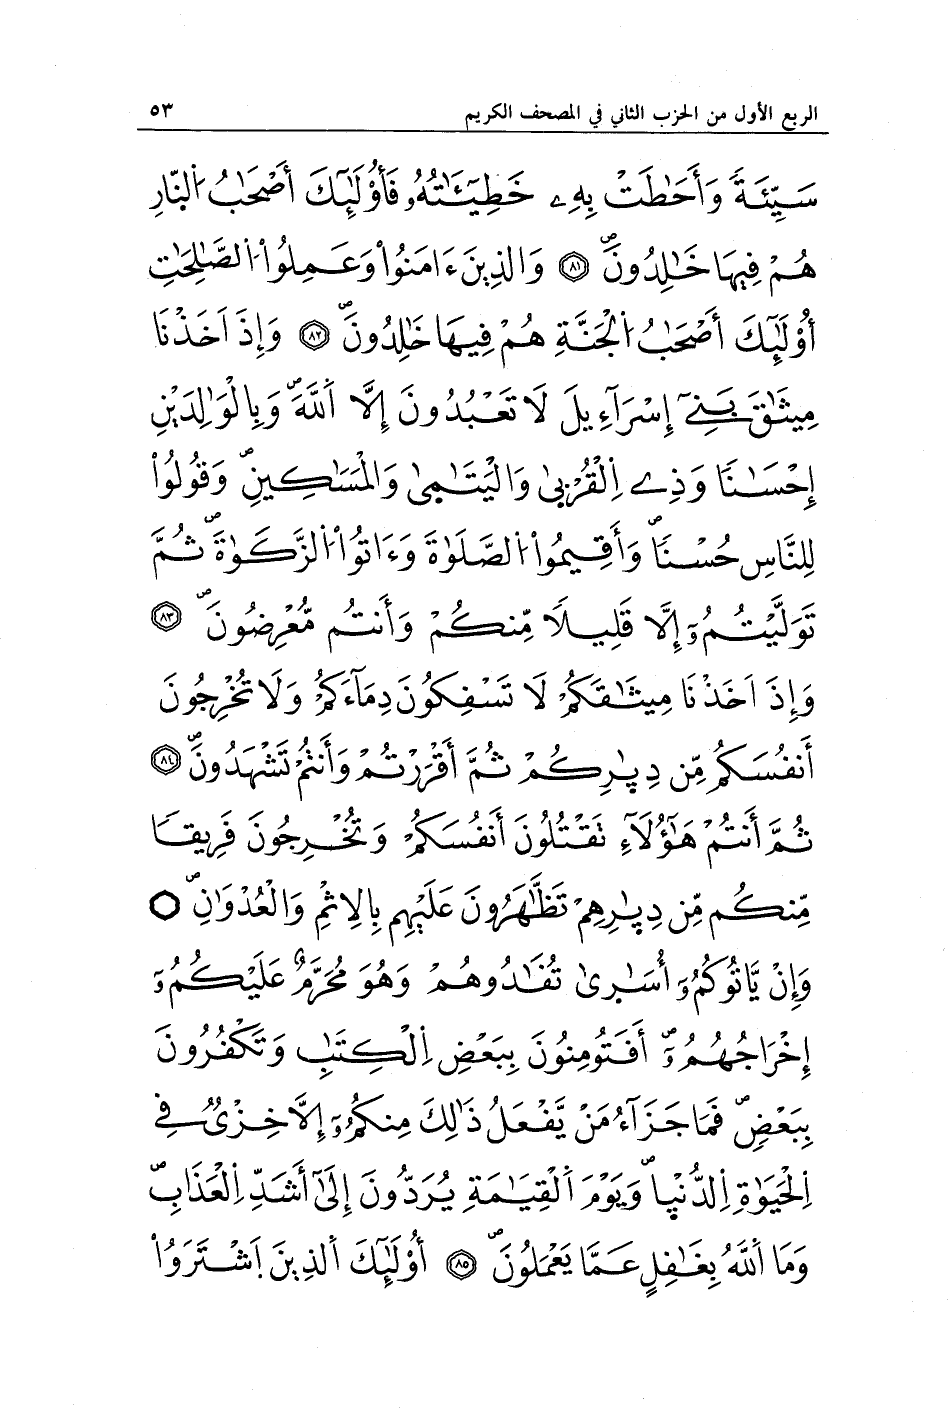 الربع الأول من الحزب الثاني في المصحف الكريم ٥٣
سَيِّئَةً وَأَحَٰطَتْ بِهِۦ خَطِيٓـَٰٔتُهُۥ فَأُوْلَٰٓئِكَ أَصْحَٰبُ اُ۬لنّ۪ارِ
هُمْ فِيهَا خَٰلِدُونَۖ ۝٨١ وَالذِينَ ءَامَنُواْ وَعَمِلُواْ اُ۬لصَّٰلِحَٰتِ
أُوْلَٰٓئِكَ أَصْحَٰبُ اُ۬لْجَنَّةِ هُمْ فِيهَا خَٰلِدُونَۖ ۝٨٢ وَإِذَ اَخَذْنَا
مِيثَٰقَ بَنِےٓ إِسْرَآءِيلَ لَا تَعْبُدُونَ إِلَّا اَ۬للَّهَۖ وَبِالْوَٰلِدَيْنِ
إِحْسَٰنًا وَذِے اِ۬لْقُرْب۪ىٰ وَالْيَتَٰم۪ىٰ وَالْمَسَٰكِينِۖ وَقُولُواْ
لِلنَّاسِ حُسْنًاۖ وَأَقِيمُواْ اُ۬لصَّلَوٰةَ وَءَاتُواْ اُ۬لزَّكَوٰةَۖ ثُمَّ
تَوَلَّيْتُمُۥٓ إِلَّا قَلِيلًا مِّنكُمْ وَأَنتُم مُّعْرِضُونَۖ ۝٨٣
وَإِذَ اَخَذْنَا مِيثَٰقَكُمْ لَا تَسْفِكُونَ دِمَآءَكُمْ وَلَا تُخْرِجُونَ
أَنفُسَكُم مِّن دِيٰ۪رِكُمْ ثُمَّ أَقْرَرْتُمْ وَأَنتُمْ تَشْهَدُونَۖ ۝٨٤
ثُمَّ أَنتُمْ هَٰٓؤُلَآءِ تَقْتُلُونَ أَنفُسَكُمْ وَتُخْرِجُونَ فَرِيقًا
مِّنكُم مِّن دِيٰ۪رِهِمْ تَظَّٰهَرُونَ عَلَيْهِم بِالِاثْمِ وَالْعُدْوَٰنِۖ ۝
وَإِنْ يَّاتُوكُمُۥٓ أُسَٰر۪ىٰ تُفَٰدُوهُمْ وَهُوَ مُحَرَّمٌ عَلَيْكُمُۥٓ
إِخْرَاجُهُمُۥٓۖ أَفَتُومِنُونَ بِبَعْضِ اِ۬لْكِتَٰبِ وَتَكْفُرُونَ
بِبَعْضٍۖ فَمَا جَزَآءُ مَنْ يَّفْعَلُ ذَٰلِكَ مِنكُمُۥٓ إِلَّا خِزْيٌ فِے
اِ۬لْحَيَوٰةِ اِ۬لدُّنْي۪اۖ وَيَوْمَ اَ۬لْقِيَٰمَةِ يُرَدُّونَ إِلَىٰٓ أَشَدِّ اِ۬لْعَذَابِۖ
وَمَا اَ۬للَّهُ بِغَٰفِلٍ عَمَّا يَعْمَلُونَۖ ۝٨٥ أُوْلَٰٓئِكَ اَ۬لذِينَ اَ۪شْتَرَوُاْ